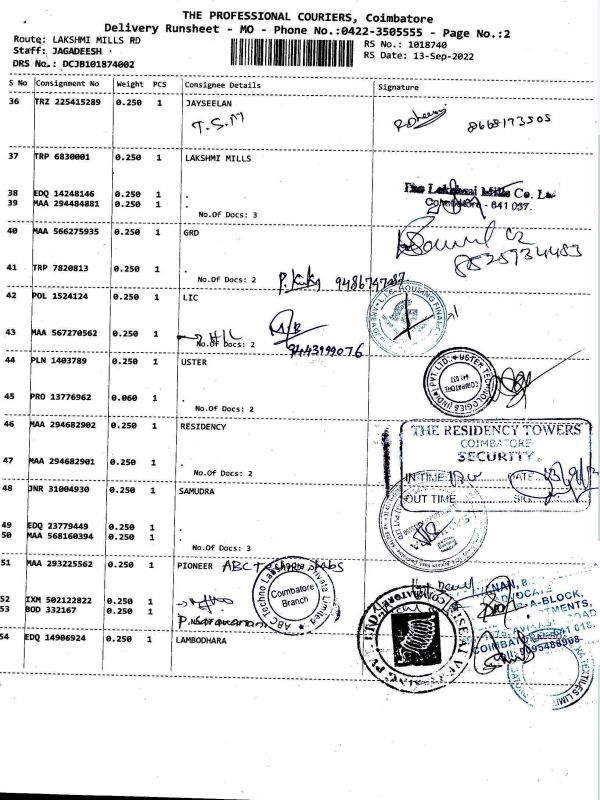 THE PROFESSIONAL COURIERS, Coimbatore
Delivery Runsheet - MO - Phone No.:0422-3505555 - Page No.:2
Route: LAKSHMI MILLS RD
RS No.: 1018740
Staff: JAGADEESH
RS Date: 13-Sep-2022
DRS No.: DCJB101874002
S No Consignment No Weight PCS Consignee Details Signature
36 TRZ 225415289 0.250 1 JAYSEELAN
T.S.M
8668173505
37 TRP 6830001 0.250 1 LAKSHMI MILLS
38 EDQ 14248146 0.250 1 .
39 MAA 294484881 0.250 1 .
Mills Co.
Coimbatore - 641 037.
No.Of Docs: 3
40 MAA 566275935 0.250 1 GRD
8525934483
41 TRP 7820813 0.250 1 .
No.Of Docs: 2
9486747087
42 POL 1524124 0.250 1 LIC
HOUSING FINANCE
43 MAA 567270562 0.250 1 .
No.Of Docs: 2
9443199076
44 PLN 1403789 0.250 1 USTER
USTER TECHNOLOGIES (INDIA) PVT. LTD.
COIMBATORE
641 037
45 PRO 13776962 0.060 1 .
No.Of Docs: 2
46 MAA 294682902 0.250 1 RESIDENCY
THE RESIDENCY TOWERS
COIMBATORE
SECURITY
47 MAA 294682901 0.250 1 .
No.Of Docs: 2
IN TIME DATE
OUT TIME SIG
48 JNR 31004930 0.250 1 SAMUDRA
49 EDQ 23779449 0.250 1 .
50 MAA 568160394 0.250 1 .
No.Of Docs: 3
51 MAA 293225562 0.250 1 PIONEER ABC Techno Labs
ABC Techno Labs India Private Limited
Coimbatore
Branch
52 IXM 502122822 0.250 1
53 BOD 332167 0.250 1
ADVOCATE
A-BLOCK,
COIMBATORE
54 EDQ 14906924 0.250 1 LAMBODHARA